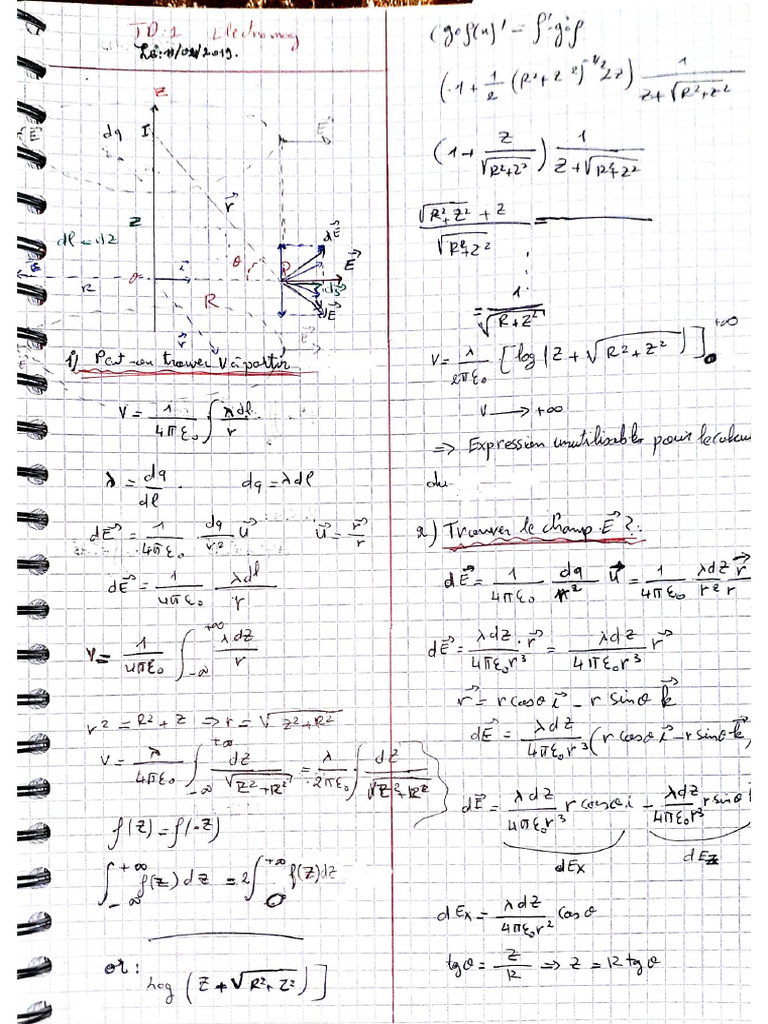 TD: 1 Electromag
Le: 11/02/2019.
z
dq
I
E⃗
E⃗
r⃗
z
dl = dz
dE⃗
θ
P
E⃗
o
i⃗
R
R
dE⃗
r⃗
E⃗
1) Peut-on trouver V à partir
V = 1/4πε₀ ∫ λdl/r
λ = dq/dl . dq = λdl
dE⃗ = 1/4πε₀ dq/r² u⃗ u⃗ = r⃗/r
dE⃗ = 1/4πε₀ λdl/r
V = 1/4πε₀ ∫_{-∞}^{+∞} λdz/r
r² = R² + Z ⇒ r = √(Z² + R²)
V = λ/4πε₀ ∫_{-∞}^{+∞} dz/√(Z² + R²) = λ/2πε₀ ∫ dz/√(Z² + R²)
f(Z) = f(-Z)
∫_{-∞}^{+∞} f(z) dz = 2 ∫_{0}^{+∞} f(z) dz
or: log (Z + √(R² + Z²)) ]
(gof(x))' = f'.g'of
(1 + 1/2 (R² + Z²)^{-1/2} 2Z) 1/(Z + √(R² + Z²))
(1 + Z/√(R² + Z²)) 1/(Z + √(R² + Z²))
(√(R² + Z²) + Z)/√(R² + Z²) =
= 1/√(R + Z²)
V = λ/2πε₀ [log |Z + √(R² + Z²)]₀^{+∞}
V → +∞
⇒ Expression inutilisable pour le calcul
du
2) Trouver le champ E⃗ ?.
dE⃗ = 1/4πε₀ dq/r² u⃗ = 1/4πε₀ λdz/r² r⃗/r
dE⃗ = λdz/4πε₀r³ . r⃗ = λdz/4πε₀r³ r⃗
r⃗ = r cosθ i⃗ - r sinθ k⃗
dE⃗ = λdz/4πε₀r³ (r cosθ i⃗ - r sinθ k⃗)
dE⃗ = λdz/4πε₀r³ r cosθ i - λdz/4πε₀r³ r sinθ
dEx dEz
dEx = λdz/4πε₀r² cosθ
tgθ = Z/R ⇒ Z = R tgθ